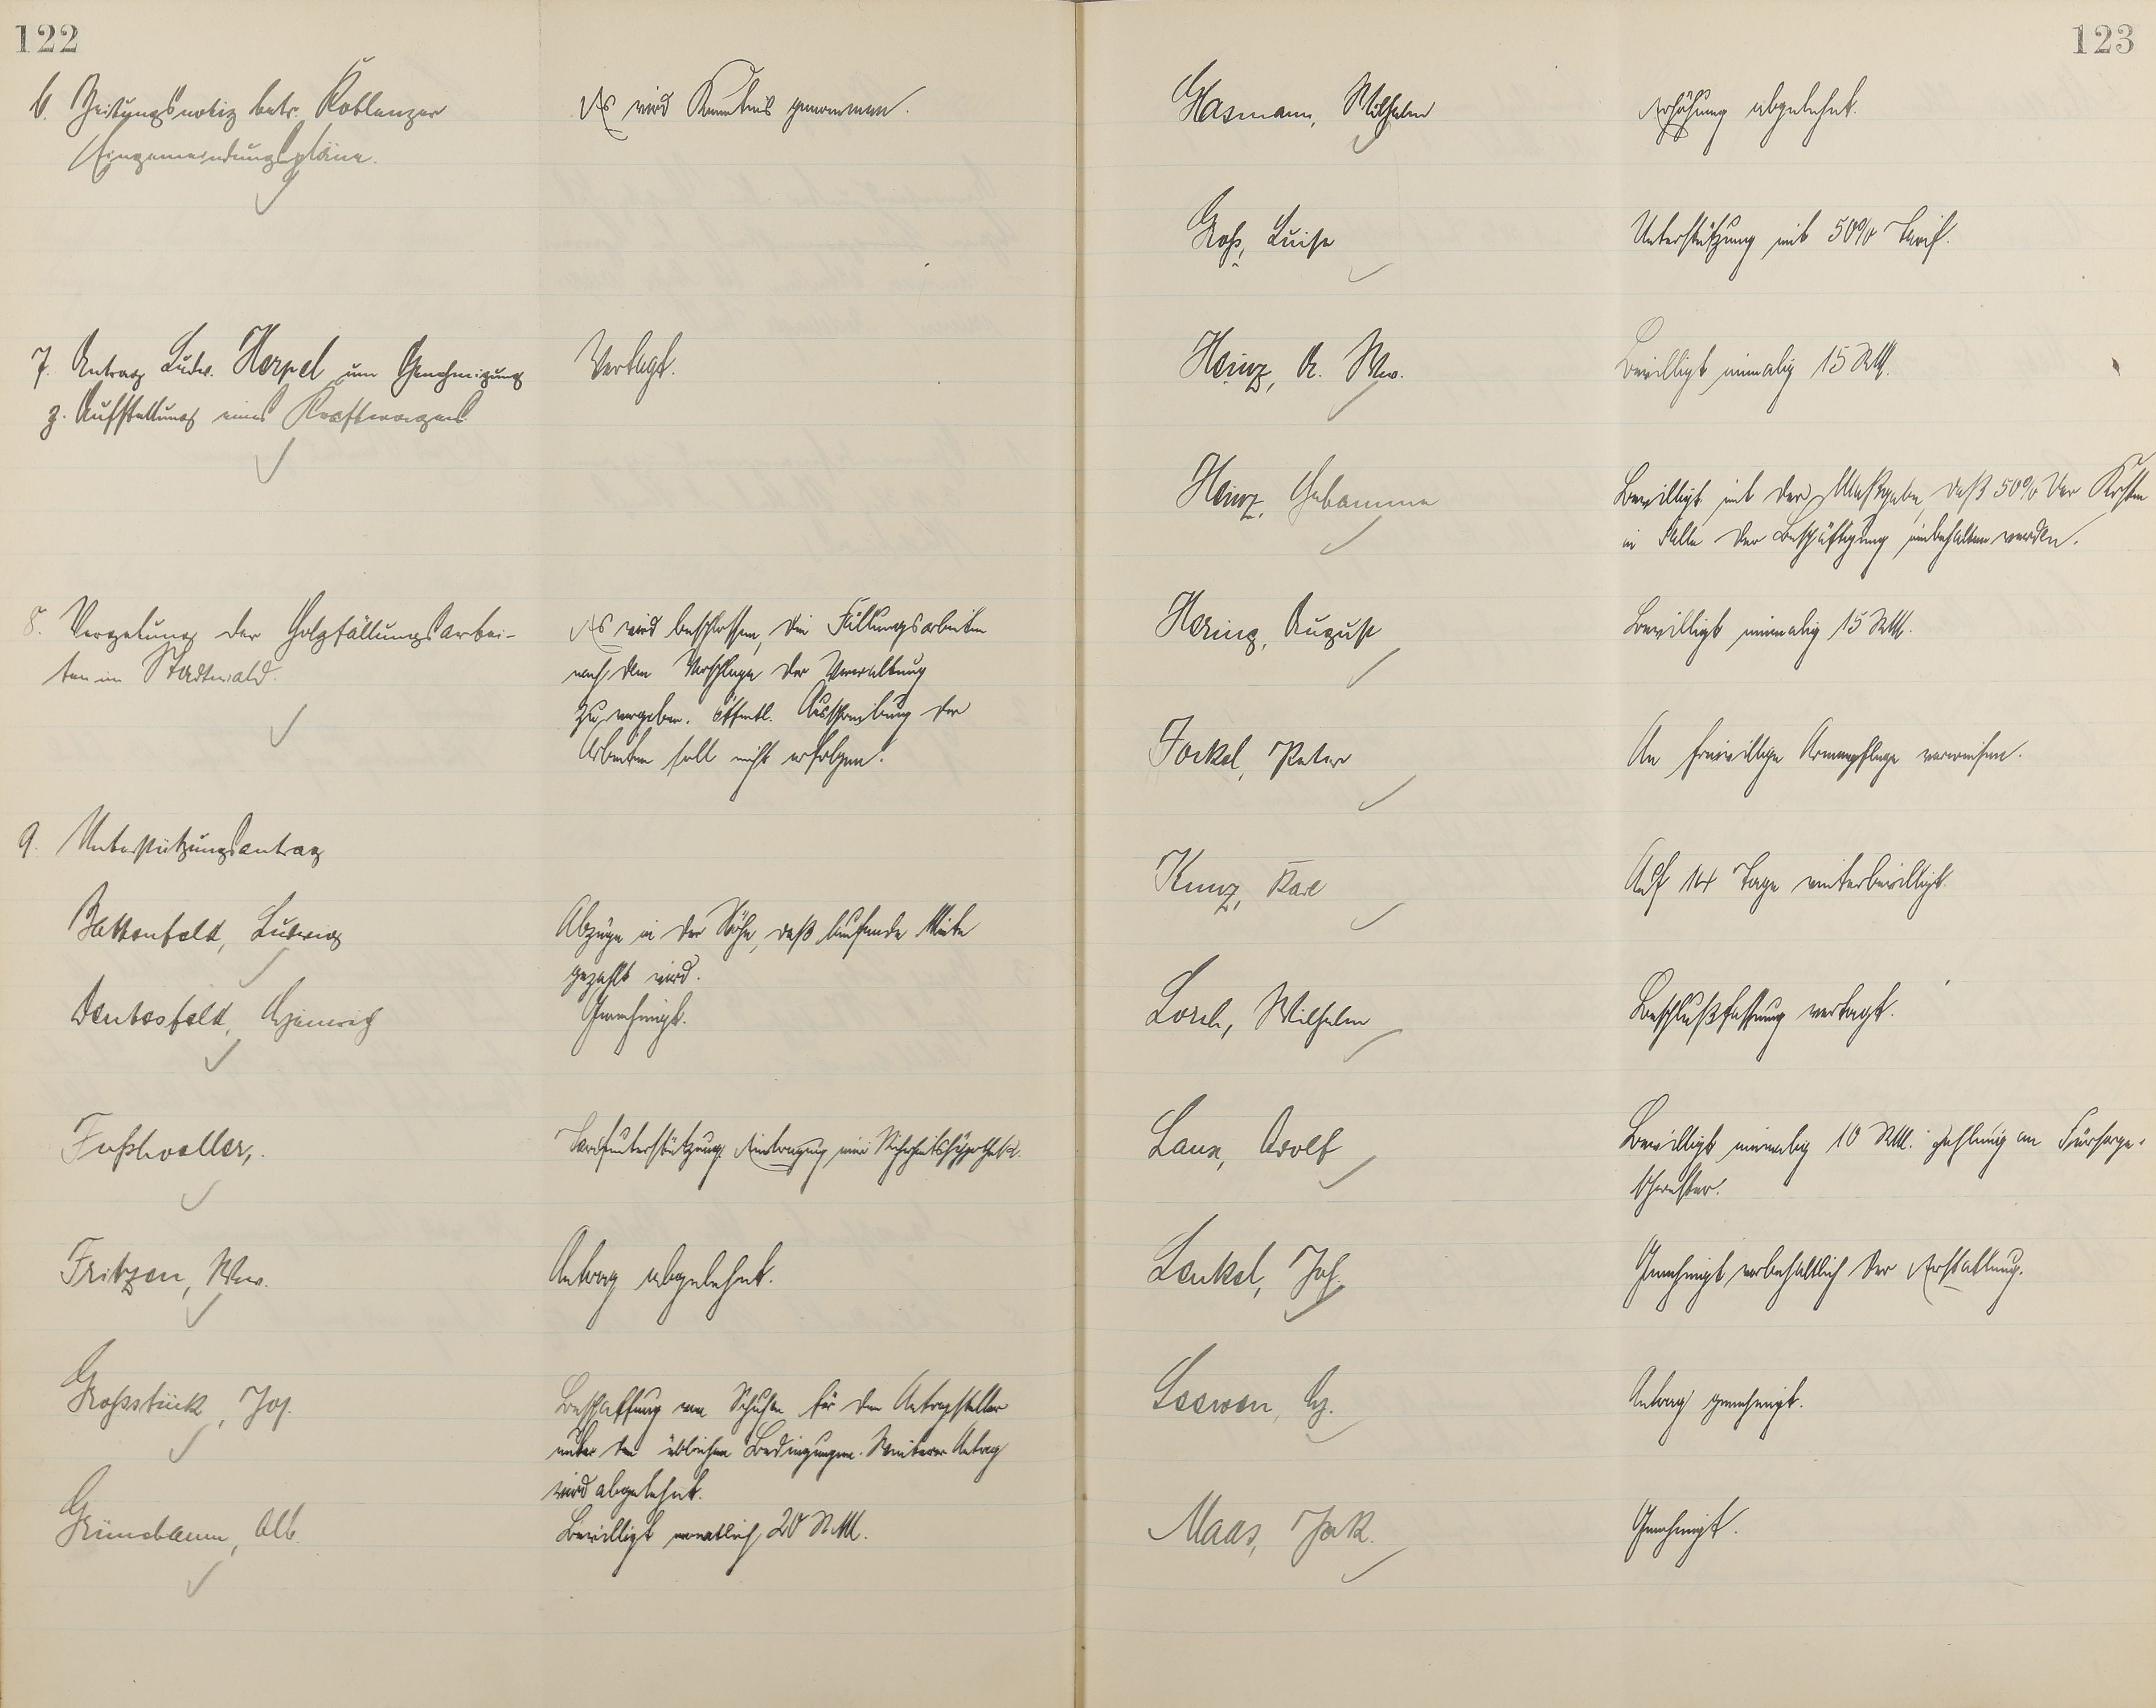 122
6. Zeitungsnotiz betr. Koblenzer
Eingemeindungspläne.
Es wird Kenntnis genommen.
7. Antrag Ludw. Herpel um Genehmigung
z. Aufstellung eines Kraftwagens
Vertagt.
8. Vergebung der Holzfällungsarbei-
ten im Stadtwald.
Es wird beschlossen, die Fällungsarbeiten
nach dem Vorschlage der Verwaltung
zu vergeben. Öffentl. Ausschreibung der
Arbeiten soll nicht erfolgen.
9. Unterstützungsantrag
Battenfeld, Ludwig
Abzüge in der Höhe, daß laufende Miete
gezahlt wird.
Dentesfeld, Heinrich
Genehmigt.
Fußhoeller,
Tarifunterstützung. Eintragung einer Sicherheitshypothek.
Fritzen, Ww.
Antrag abgelehnt.
Großstück, Jos.
Beschaffung von Schuhen für den Antragsteller
unter den üblichen Bedingungen. Weiterer Antrag
wird abgelehnt.
Grünebaum, Alb.
Bewilligt monatlich 20 RM.
123
Hasmann, Wilhelm
Erhöhung abgelehnt.
Groß, Luise
Unterstützung mit 50% Tarif.
Heinz, A. Ww.
Bewilligt einmalig 15 RM.
Heinz, Hebamme
Bewilligt mit der Maßgabe, daß 50% der Kosten
im Falle der Beschäftigung einbehalten werden.
Hering, August
Bewilligt einmalig 15 RM.
Jockel, Peter
An freiwillige Armenpflege verweisen.
Kunz, Karl
Auf 14 Tage weiterbewilligt.
Lorch, Wilhelm
Beschlußfassung vertagt.
Laux, Adolf
Bewilligt einmalig 10 RM. Zahlung an Fürsorge-
schwester.
Lenkel, Joh.
Genehmigt vorbehaltlich der Erstattung.
Leewen, Hch.
Antrag genehmigt.
Maas, Jak.
Genehmigt.